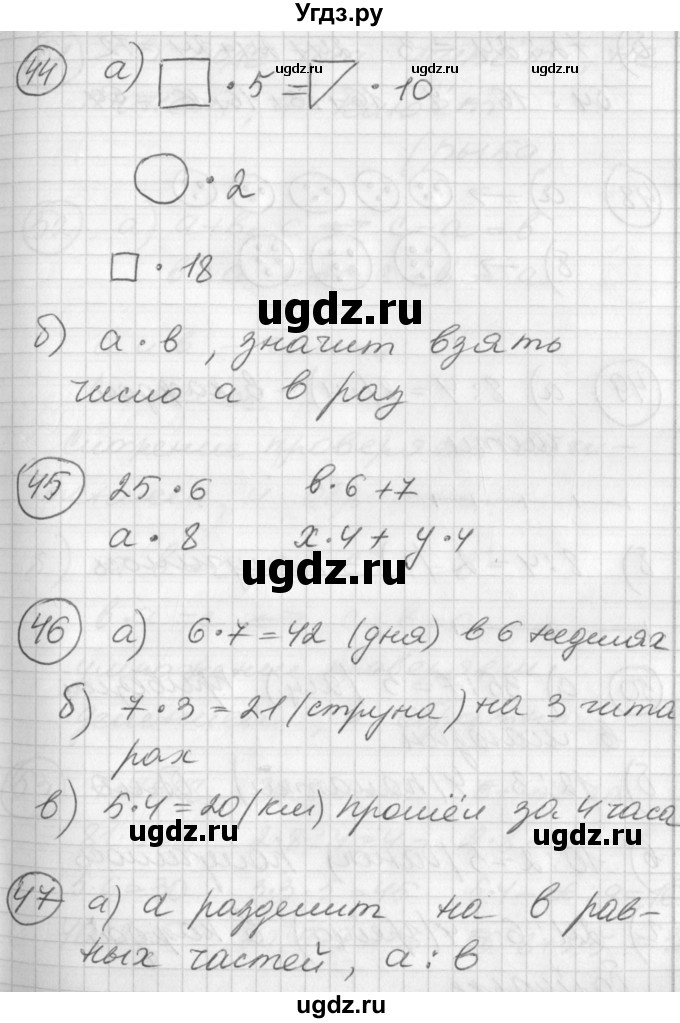 Угдз.ру
44 а) □ · 5 = ▽ · 10
ugdz.ru ugdz.ru ugdz.ru
○ · 2
□ · 18
ugdz.ru
б) а · в, значит взять
число а в раз
45 25 · 6 в · 6 + 7
а · 8 х · 4 + у · 4
ugdz.ru
46 а) 6 · 7 = 42 (дня) в 6 неделях
б) 7 · 3 = 21 (струна) на 3 гита
рах
в) 5 · 4 = 20 (км) прошёл за 4 часа
ugdz.ru ugdz.ru
47 а) а разделит на в рав-
ных частей, а : в
ugdz.ru